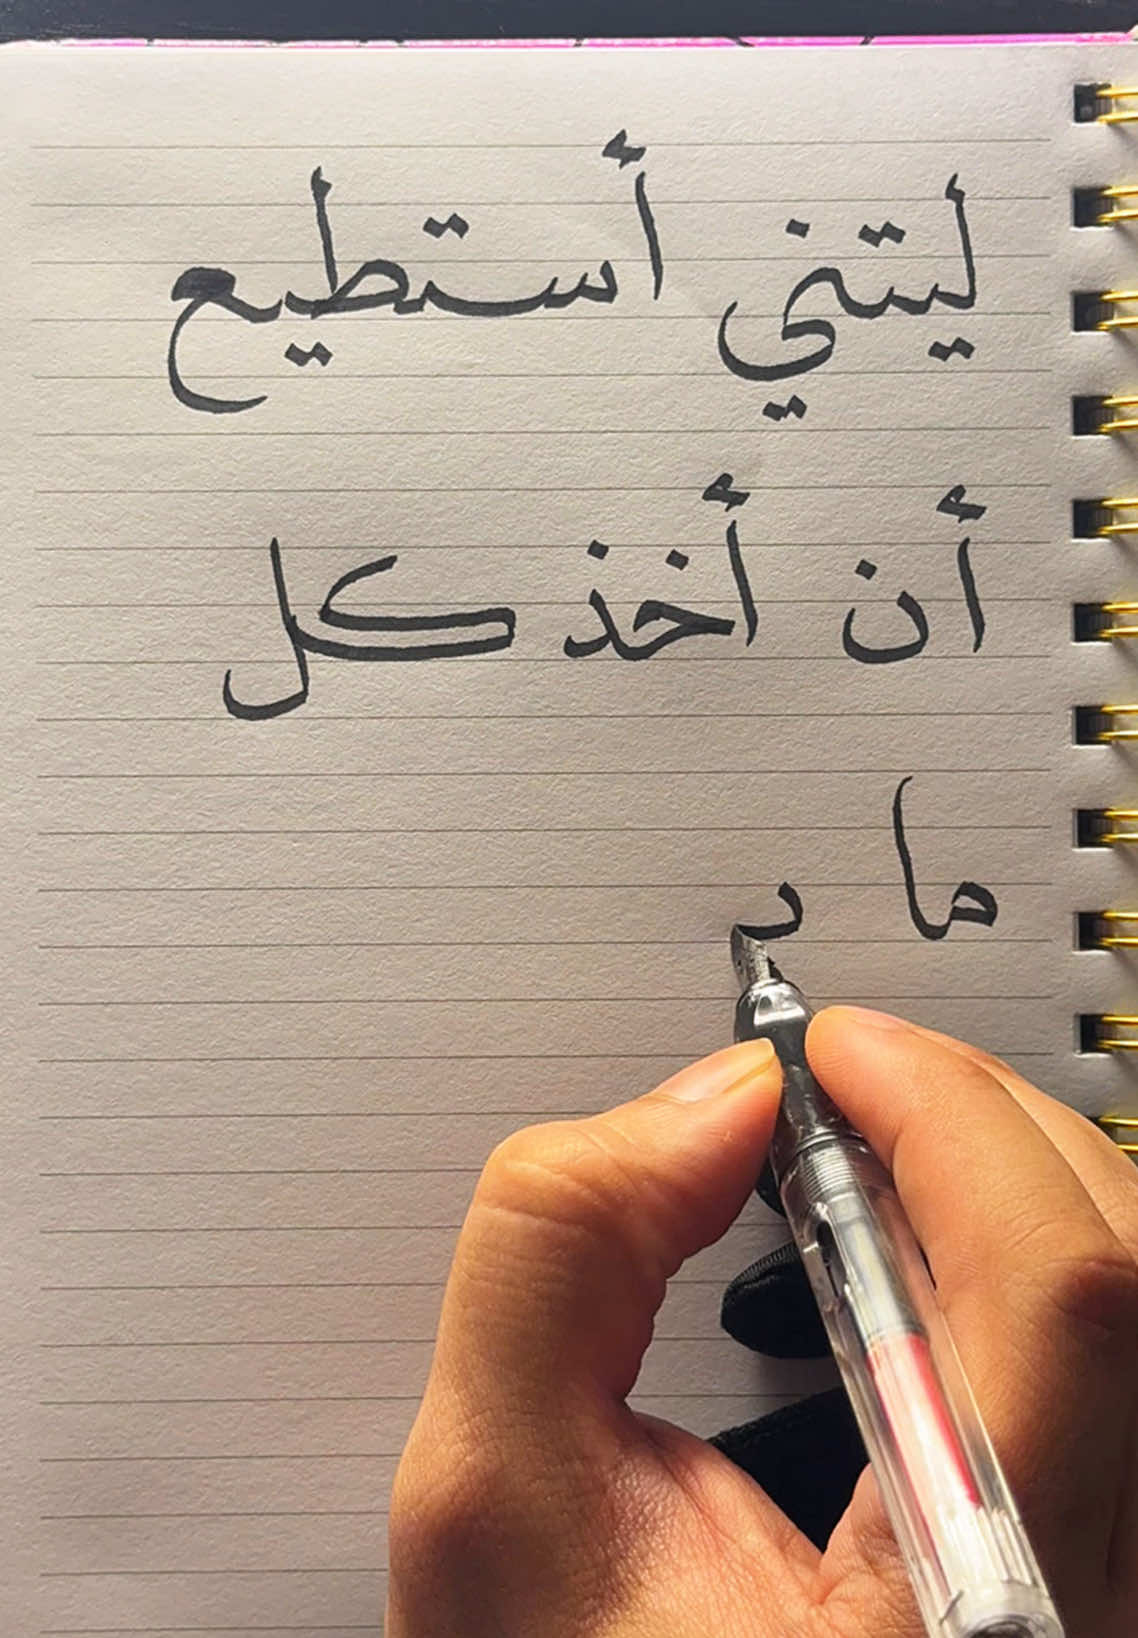 ليتني أستطيع
أن أخذ كل
ما